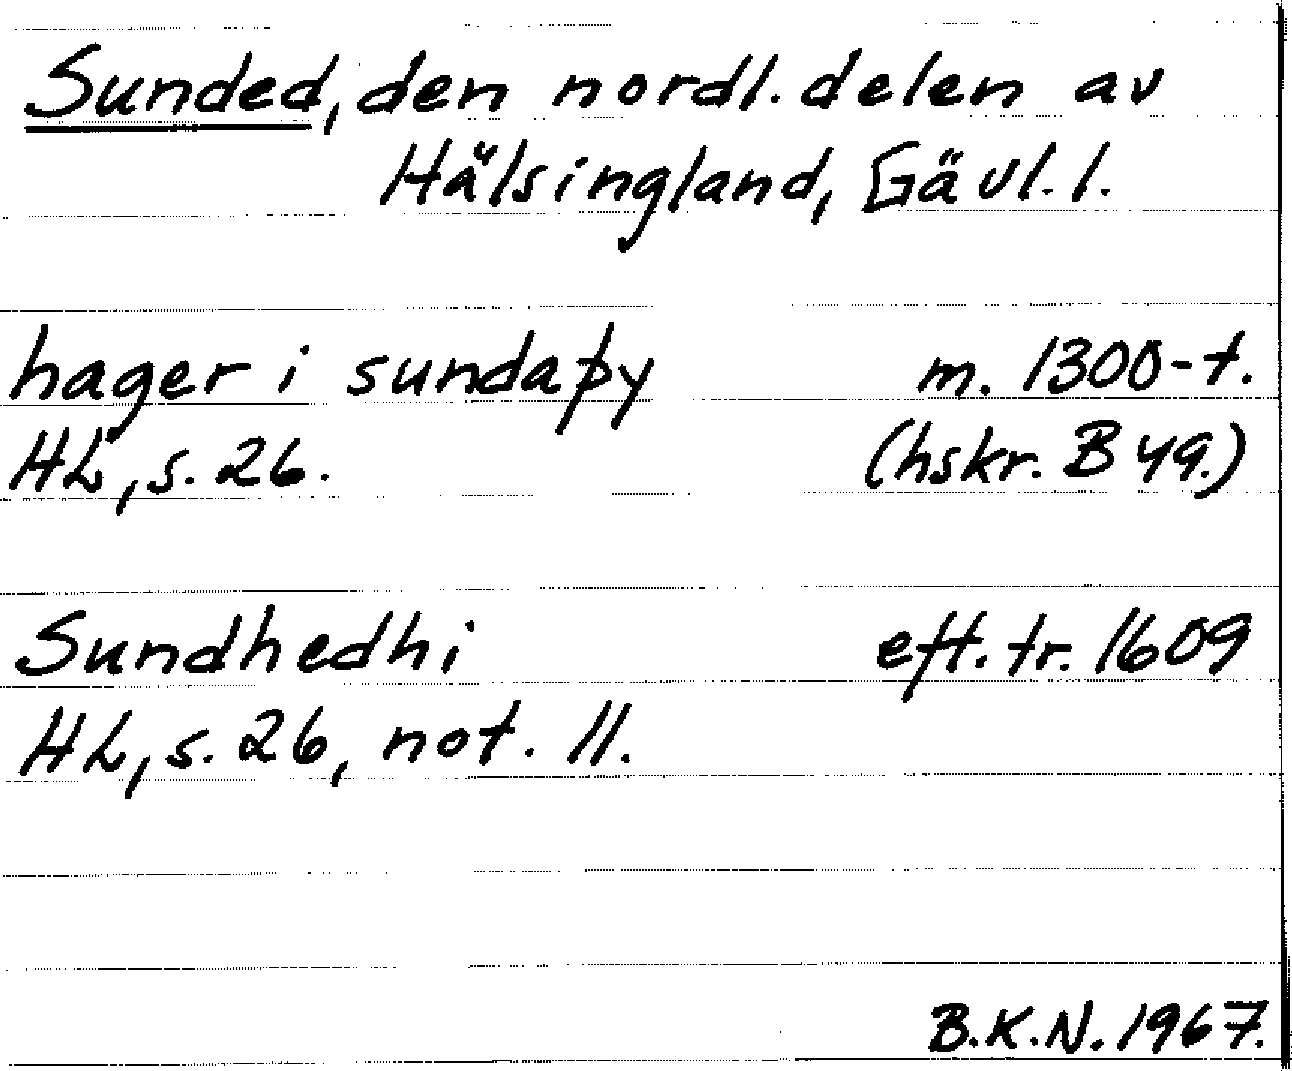 Sunded, den nordl. delen av
Hälsingland, Gävl. l.
hager i sundaþy m. 1300-t.
HL, s. 26. (hskr. B 49.)
Sundhedhi eft. tr. 1609
HL, s. 26, not. 11.
B.K.N. 1967.